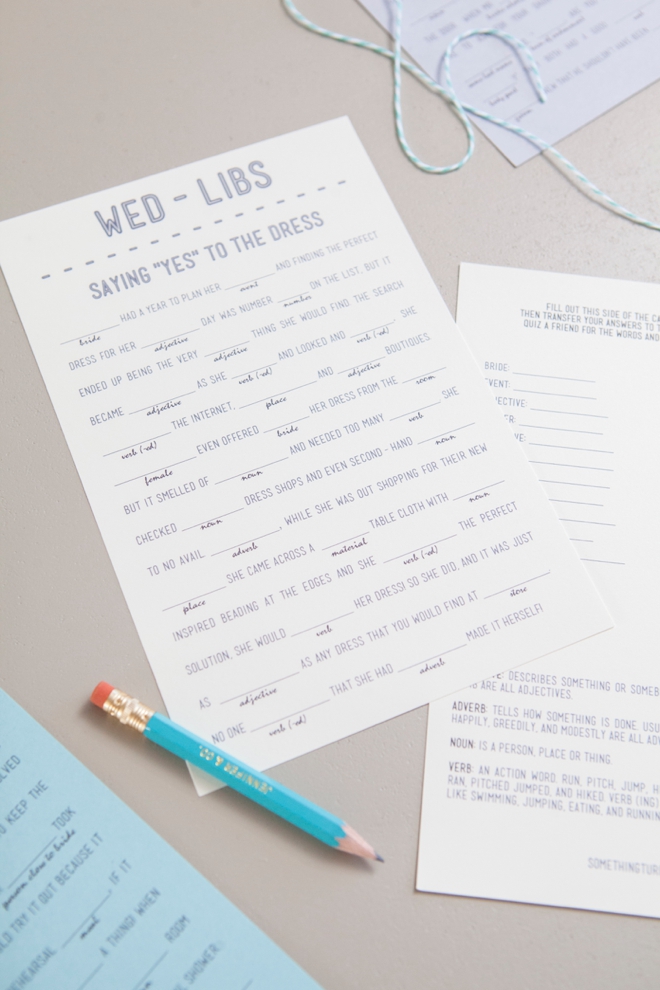 WED - LIBS
SAYING "YES" TO THE DRESS
HAD A YEAR TO PLAN HER AND FINDING THE PERFECT
bride event
DRESS FOR HER DAY WAS NUMBER ON THE LIST, BUT IT
adjective number
ENDED UP BEING THE VERY THING SHE WOULD FIND. THE SEARCH
adjective
BECAME AS SHE AND LOOKED AND . SHE
adjective verb (-ed) verb (-ed)
THE INTERNET, AND BOUTIQUES.
verb (-ed) place adjective
EVEN OFFERED HER DRESS FROM THE
female bride room
BUT IT SMELLED OF AND NEEDED TOO MANY SHE
noun verb
CHECKED DRESS SHOPS AND EVEN SECOND-HAND
noun noun
TO NO AVAIL. , WHILE SHE WAS OUT SHOPPING FOR THEIR NEW
adverb
SHE CAME ACROSS A TABLE CLOTH WITH
place material noun
INSPIRED BEADING AT THE EDGES AND SHE THE PERFECT
verb (-ed)
SOLUTION, SHE WOULD HER DRESS! SO SHE DID, AND IT WAS JUST
verb
AS AS ANY DRESS THAT YOU WOULD FIND AT
adjective store
NO ONE THAT SHE HAD MADE IT HERSELF!
verb (-ed) adverb
FILL OUT THIS SIDE OF THE
THEN TRANSFER YOUR ANSWERS TO
QUIZ A FRIEND FOR THE WORDS
BRIDE:
DESCRIBES SOMETHING OR
ARE ALL ADJECTIVES.
ADVERB: TELLS HOW SOMETHING IS DONE.
HAPPILY, GREEDILY, AND MODESTLY ARE ALL
NOUN: IS A PERSON, PLACE OR THING.
VERB: AN ACTION WORD. RUN, PITCH, JUMP,
RAN, PITCHED JUMPED, AND HIKED. VERB
LIKE SWIMMING, JUMPING, EATING, AND
KEEP THE
TOOK
person close to bride
TRY IT OUT BECAUSE IT
IF IT
A THING! WHEN
ROOM
SHOWER: